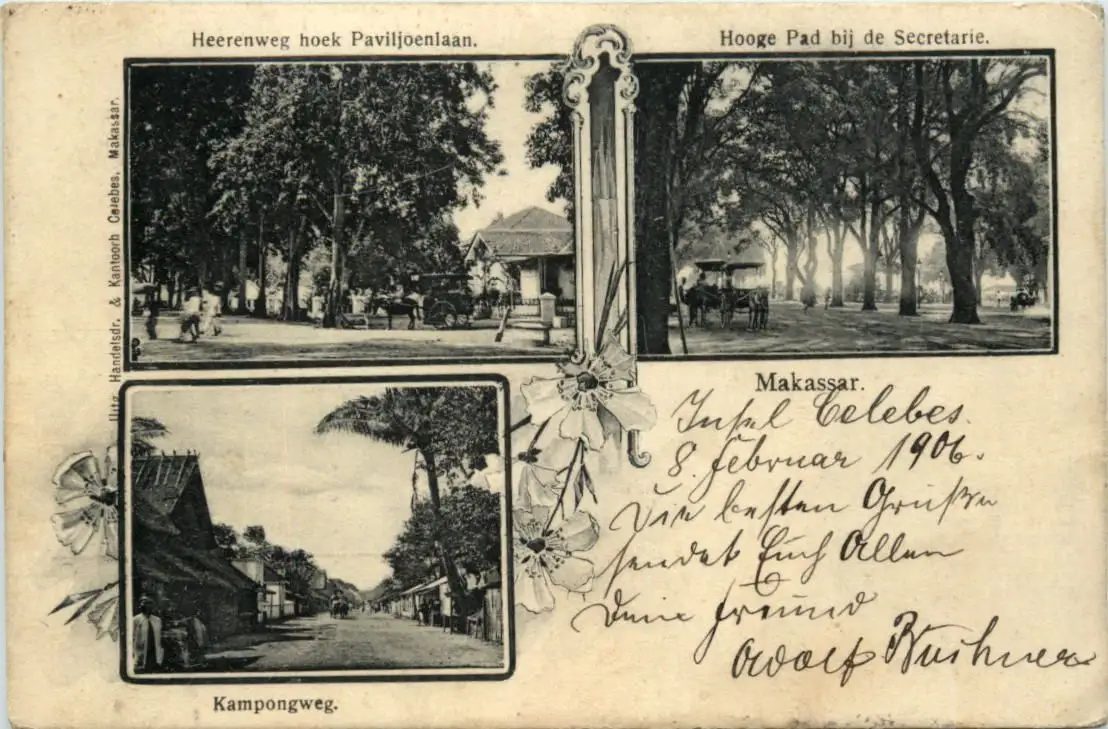 Heerenweg hoek Paviljoenlaan.
Hooge Pad bij de Secretarie.
Uitg. Handelsdr. & Kantoorh Celebes, Makassar.
Makassar.
Insel Celebes.
8. Februar 1906.
Die besten Grüße
sendet Euch Allen
Dein Freund
Adolf
Kampongweg.